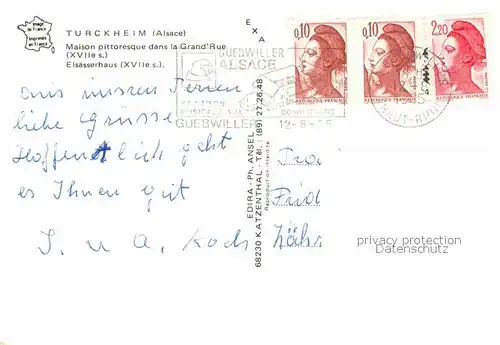 Image
de France
Imprimée
en France
TURCKHEIM (Alsace)
Maison pittoresque dans la Grand'Rue
(XVIIe s.)
Elsässerhaus (XVIIe s.)
EXA
0,10
0,10
2,20
GUEBWILLER
ALSACE
GUEBWILLER 12-8-85
HAUT-RHIN
REPUBLIQUE FRANÇAISE
REPUBLIQUE FRANÇAISE
REPUBLIQUE FRANÇAISE
aus unseren Ferien
liebe Grüsse
Hoffentlich geht
es Ihnen gut
J. u A. Koch
EDIRA - Ph. ANSEL
68230 KATZENTHAL - Tél.: (89) 27.26.48
Reproduction interdite
Fried
privacy protection
watermark